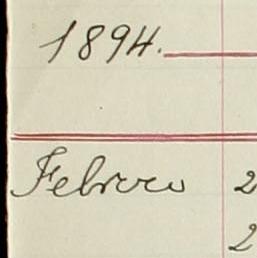 1894.
Febrero 2
2